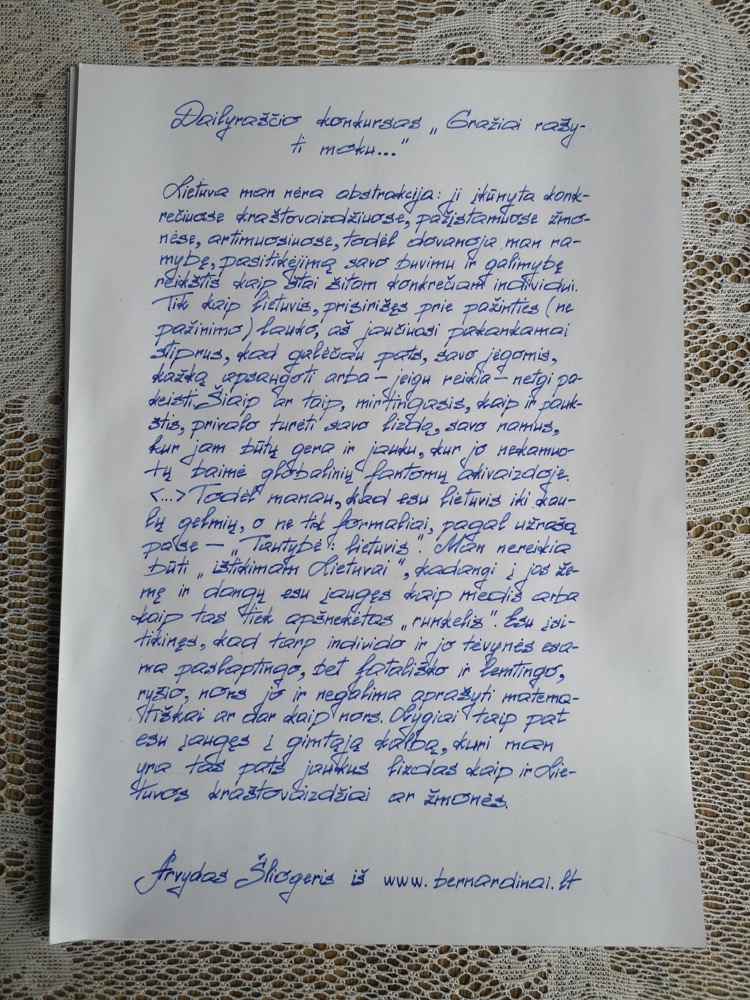 Dailyraščio konkursas „Gražiai rašy-
ti moku..."
Lietuva man nėra abstrakcija: ji įkūnyta konk-
rečiuose kraštovaizdžiuose, pažįstamuose žmo-
nėse, artimuosiuose, todėl dovanoja man ra-
mybę, pasitikėjimą savo buvimu ir galimybę
reikštis kaip šitai šitam konkrečiam individui.
Tik kaip lietuvis, prisirišęs prie pažinties (ne
pažinimo) lauko, aš jaučiuosi pakankamai
stiprus, kad galėčiau pats, savo jėgomis,
kažką apsaugoti arba – jeigu reikia – netgi pa-
keisti. Šiaip ar taip, mirtingasis, kaip ir pauk-
štis, privalo turėti savo lizdą, savo namus,
kur jam būtų gera ir jauku, kur jo nekamuo-
tų baimė globalinių fantomų akivaizdoje.
<...> Todėl manau, kad esu lietuvis iki kau-
lų gelmių, o ne tik formaliai, pagal užrašą
pase – „Tautybė: lietuvis". Man nereikia
būti „ištikimam Lietuvai", kadangi į jos že-
mę ir dangų esu įaugęs kaip medis arba
kaip tas tiek apšnekėtas „runkelis". Esu įsi-
tikinęs, kad tarp individo ir jo tėvynės esa-
ma paslaptingo, bet fatališko ir lemtingo,
ryšio, nors jo ir negalima aprašyti matema-
tiškai ar dar kaip nors. Lygiai taip pat
esu įaugęs į gimtąją kalbą, kuri man
yra tas pats jaukus lizdas kaip ir Lie-
tuvos kraštovaizdžiai ar žmonės.
Arvydas Šliogeris iš www.bernardinai.lt